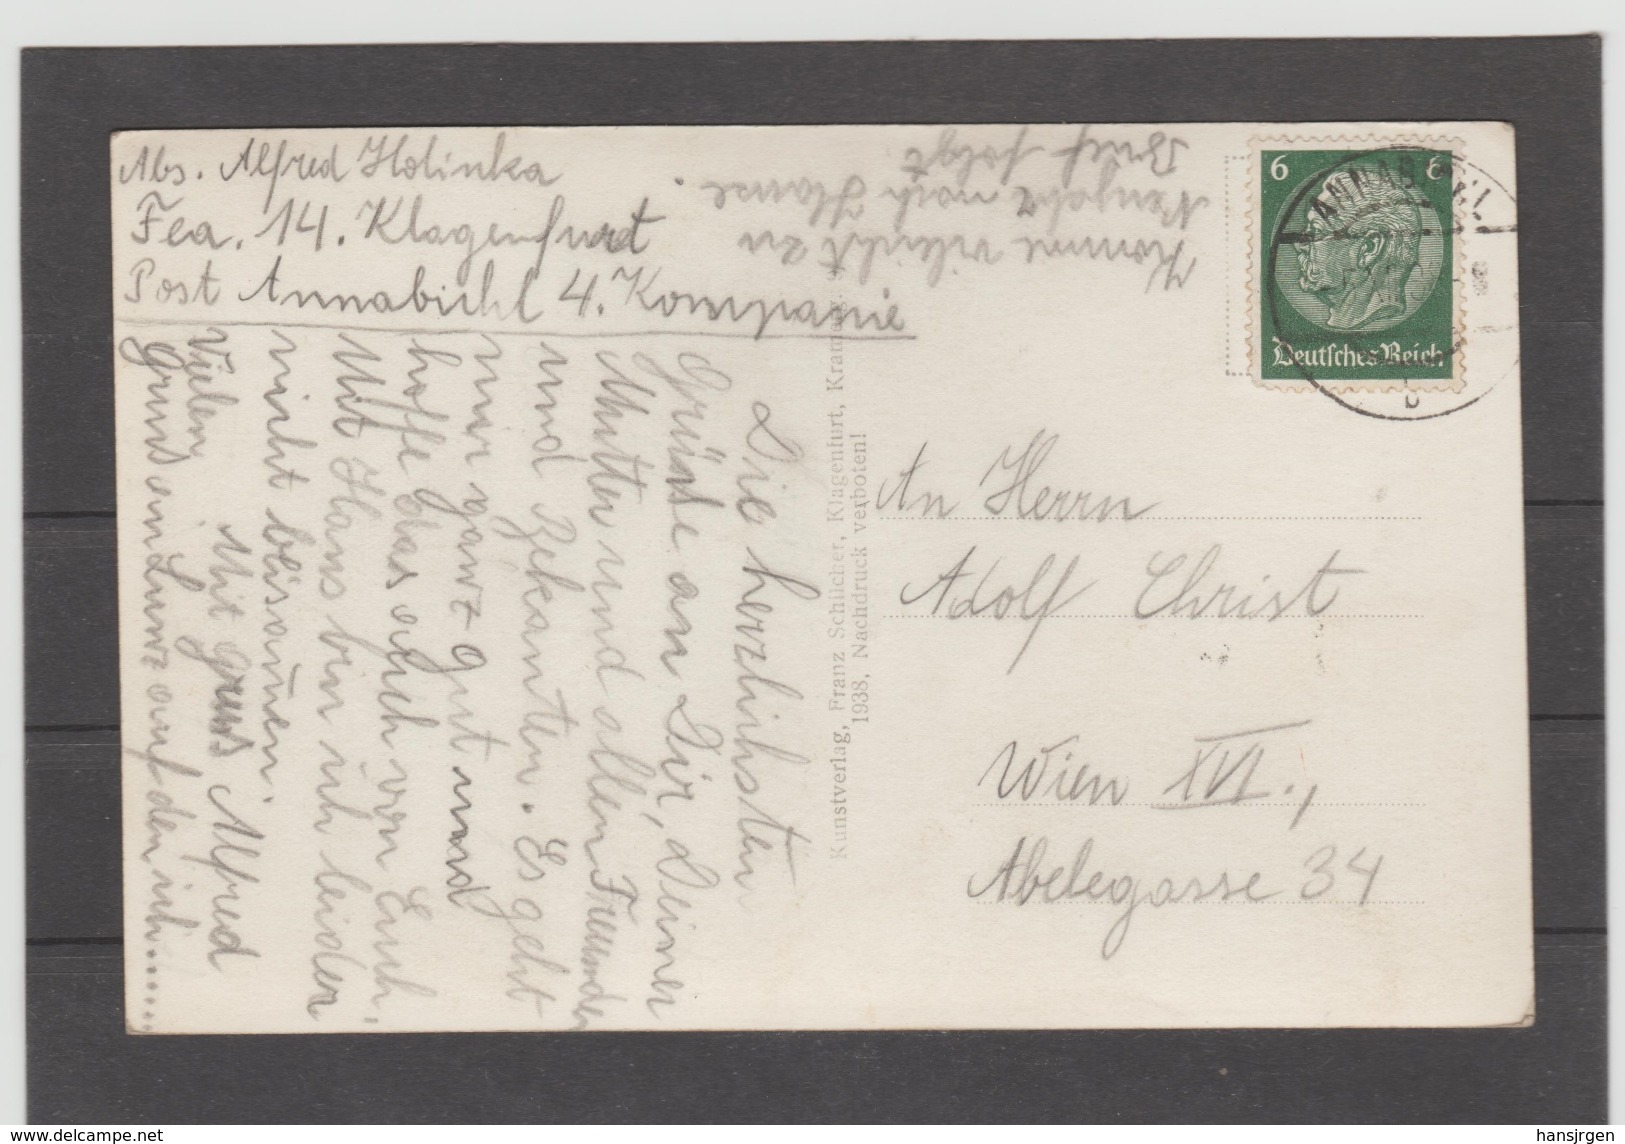 Abs. Alfred Holinka
Fea. 14. Klagenfurt
Post Annabichl 4. Kompanie
Die herzlichsten
Grüsse an Dir, Deiner
Mutter und allen Freunden
und Bekannten. Es geht
mir ganz gut und
hoffe das auch von Euch.
Mit Hans bin ich leider
nicht beisamen.
Vielen Mit gruss Alfred
Gruss an Luwz auf den ich......
Komme vileicht zu
Neujahr nach Hause.
Brief folgt
Kunstverlag, Franz Schilcher, Klagenfurt,
1938, Nachdruck verboten!
6 6
Deutsches Reich
ANNABICHL
b
An Herrn
Adolf Christ
Wien XVI.,
Abelegasse 34
www.delcampe.net
hansjrgen